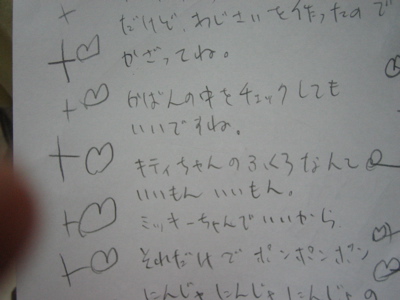 だけど、あじさいを作ったので
かざってね。
かばんの中をチェックしても
いいですね。
キティちゃんのふくろなんて
いいもん いいもん。
ミッキーちゃんでいいから
それだけで ポンポンポン
にんじゃ にんじゃ にんじゃの